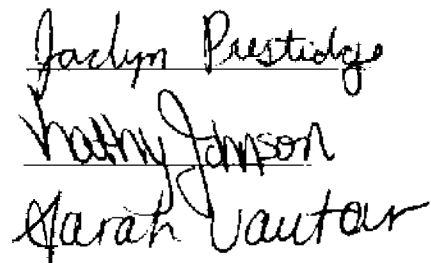 Jaclyn Prestidge
Kathy Johnson
Sarah Vautour